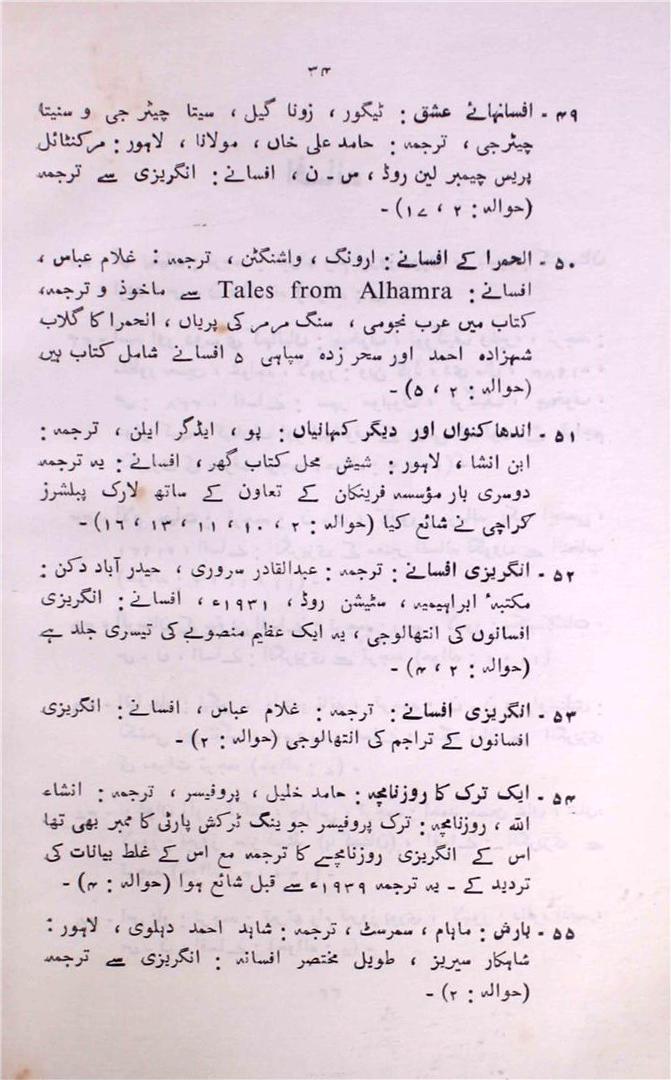 ۳۴
۴۹ - افسانہائے عشق : ٹیگور ، زونا گیل ، سیتا چیٹر جی و سنیتا
چیٹرجی ، ترجمہ : حامد علی خاں ، مولانا ، لاہور : مرکنٹائل
پریس چیمبر لین روڈ ، س - ن ، افسانے : انگریزی سے ترجمہ
(حوالہ : ۲ ، ۱۷) -
۵۰ - الحمرا کے افسانے : ارونگ ، واشنگٹن ، ترجمہ : غلام عباس ،
افسانے : Tales from Alhamra سے ماخوذ و ترجمہ،
کتاب میں عرب نجومی ، سنگ مرمر کی پریاں ، الحمرا کا گلاب
شہزادہ احمد اور سحر زدہ سپاہی ۵ افسانے شامل کتاب ہیں
(حوالہ : ۲ ، ۵) -
۵۱ - اندھا کنواں اور دیگر کہانیاں : پو ، ایڈگر ایلن ، ترجمہ :
ابن انشا ، لاہور : شیش محل کتاب گھر ، افسانے : یہ ترجمہ
دوسری بار مؤسسہ فرینکلن کے تعاون کے ساتھ لارک پبلشرز
کراچی نے شائع کیا (حوالہ : ۲ ، ۱۰ ، ۱۱ ، ۱۳ ، ۱۶) -
۵۲ - انگریزی افسانے : ترجمہ : عبدالقادر سروری ، حیدر آباد دکن :
مکتبہٴ ابراہیمیہ ، سٹیشن روڈ ، ۱۹۳۱ء ، افسانے : انگریزی
افسانوں کی انتھالوجی ، یہ ایک عظیم منصوبے کی تیسری جلد ہے
(حوالہ : ۲ ، ۴) -
۵۳ - انگریزی افسانے : ترجمہ : غلام عباس ، افسانے : انگریزی
افسانوں کے تراجم کی انتھالوجی (حوالہ : ۲) -
۵۴ - ایک ترک کا روزنامچہ : حامد خلیل ، پروفیسر ، ترجمہ : انشاء
اللہ ، روزنامچہ : ترک پروفیسر جو ینگ ٹرکش پارٹی کا ممبر بھی تھا
اس کے انگریزی روزنامچے کا ترجمہ مع اس کے غلط بیانات کی
تردید کے - یہ ترجمہ ۱۹۳۹ء سے قبل شائع ہوا (حوالہ : ۴) -
۵۵ - بارش : ماہام ، سمرسٹ ، ترجمہ : شاہد احمد دہلوی ، لاہور :
شاہکار سیریز ، طویل مختصر افسانہ : انگریزی سے ترجمہ
(حوالہ : ۲) -